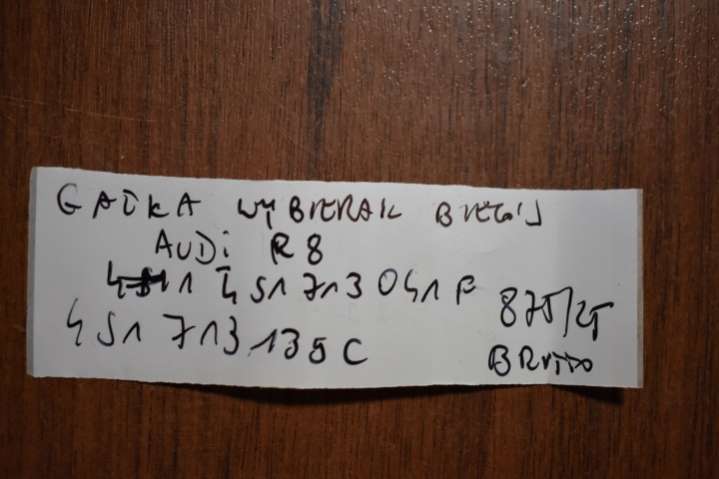 GAŁKA WYBIERAK BIEGÓW
AUDi R8
451 713 041 F
451 713 135 C
875/25
BRUTTO